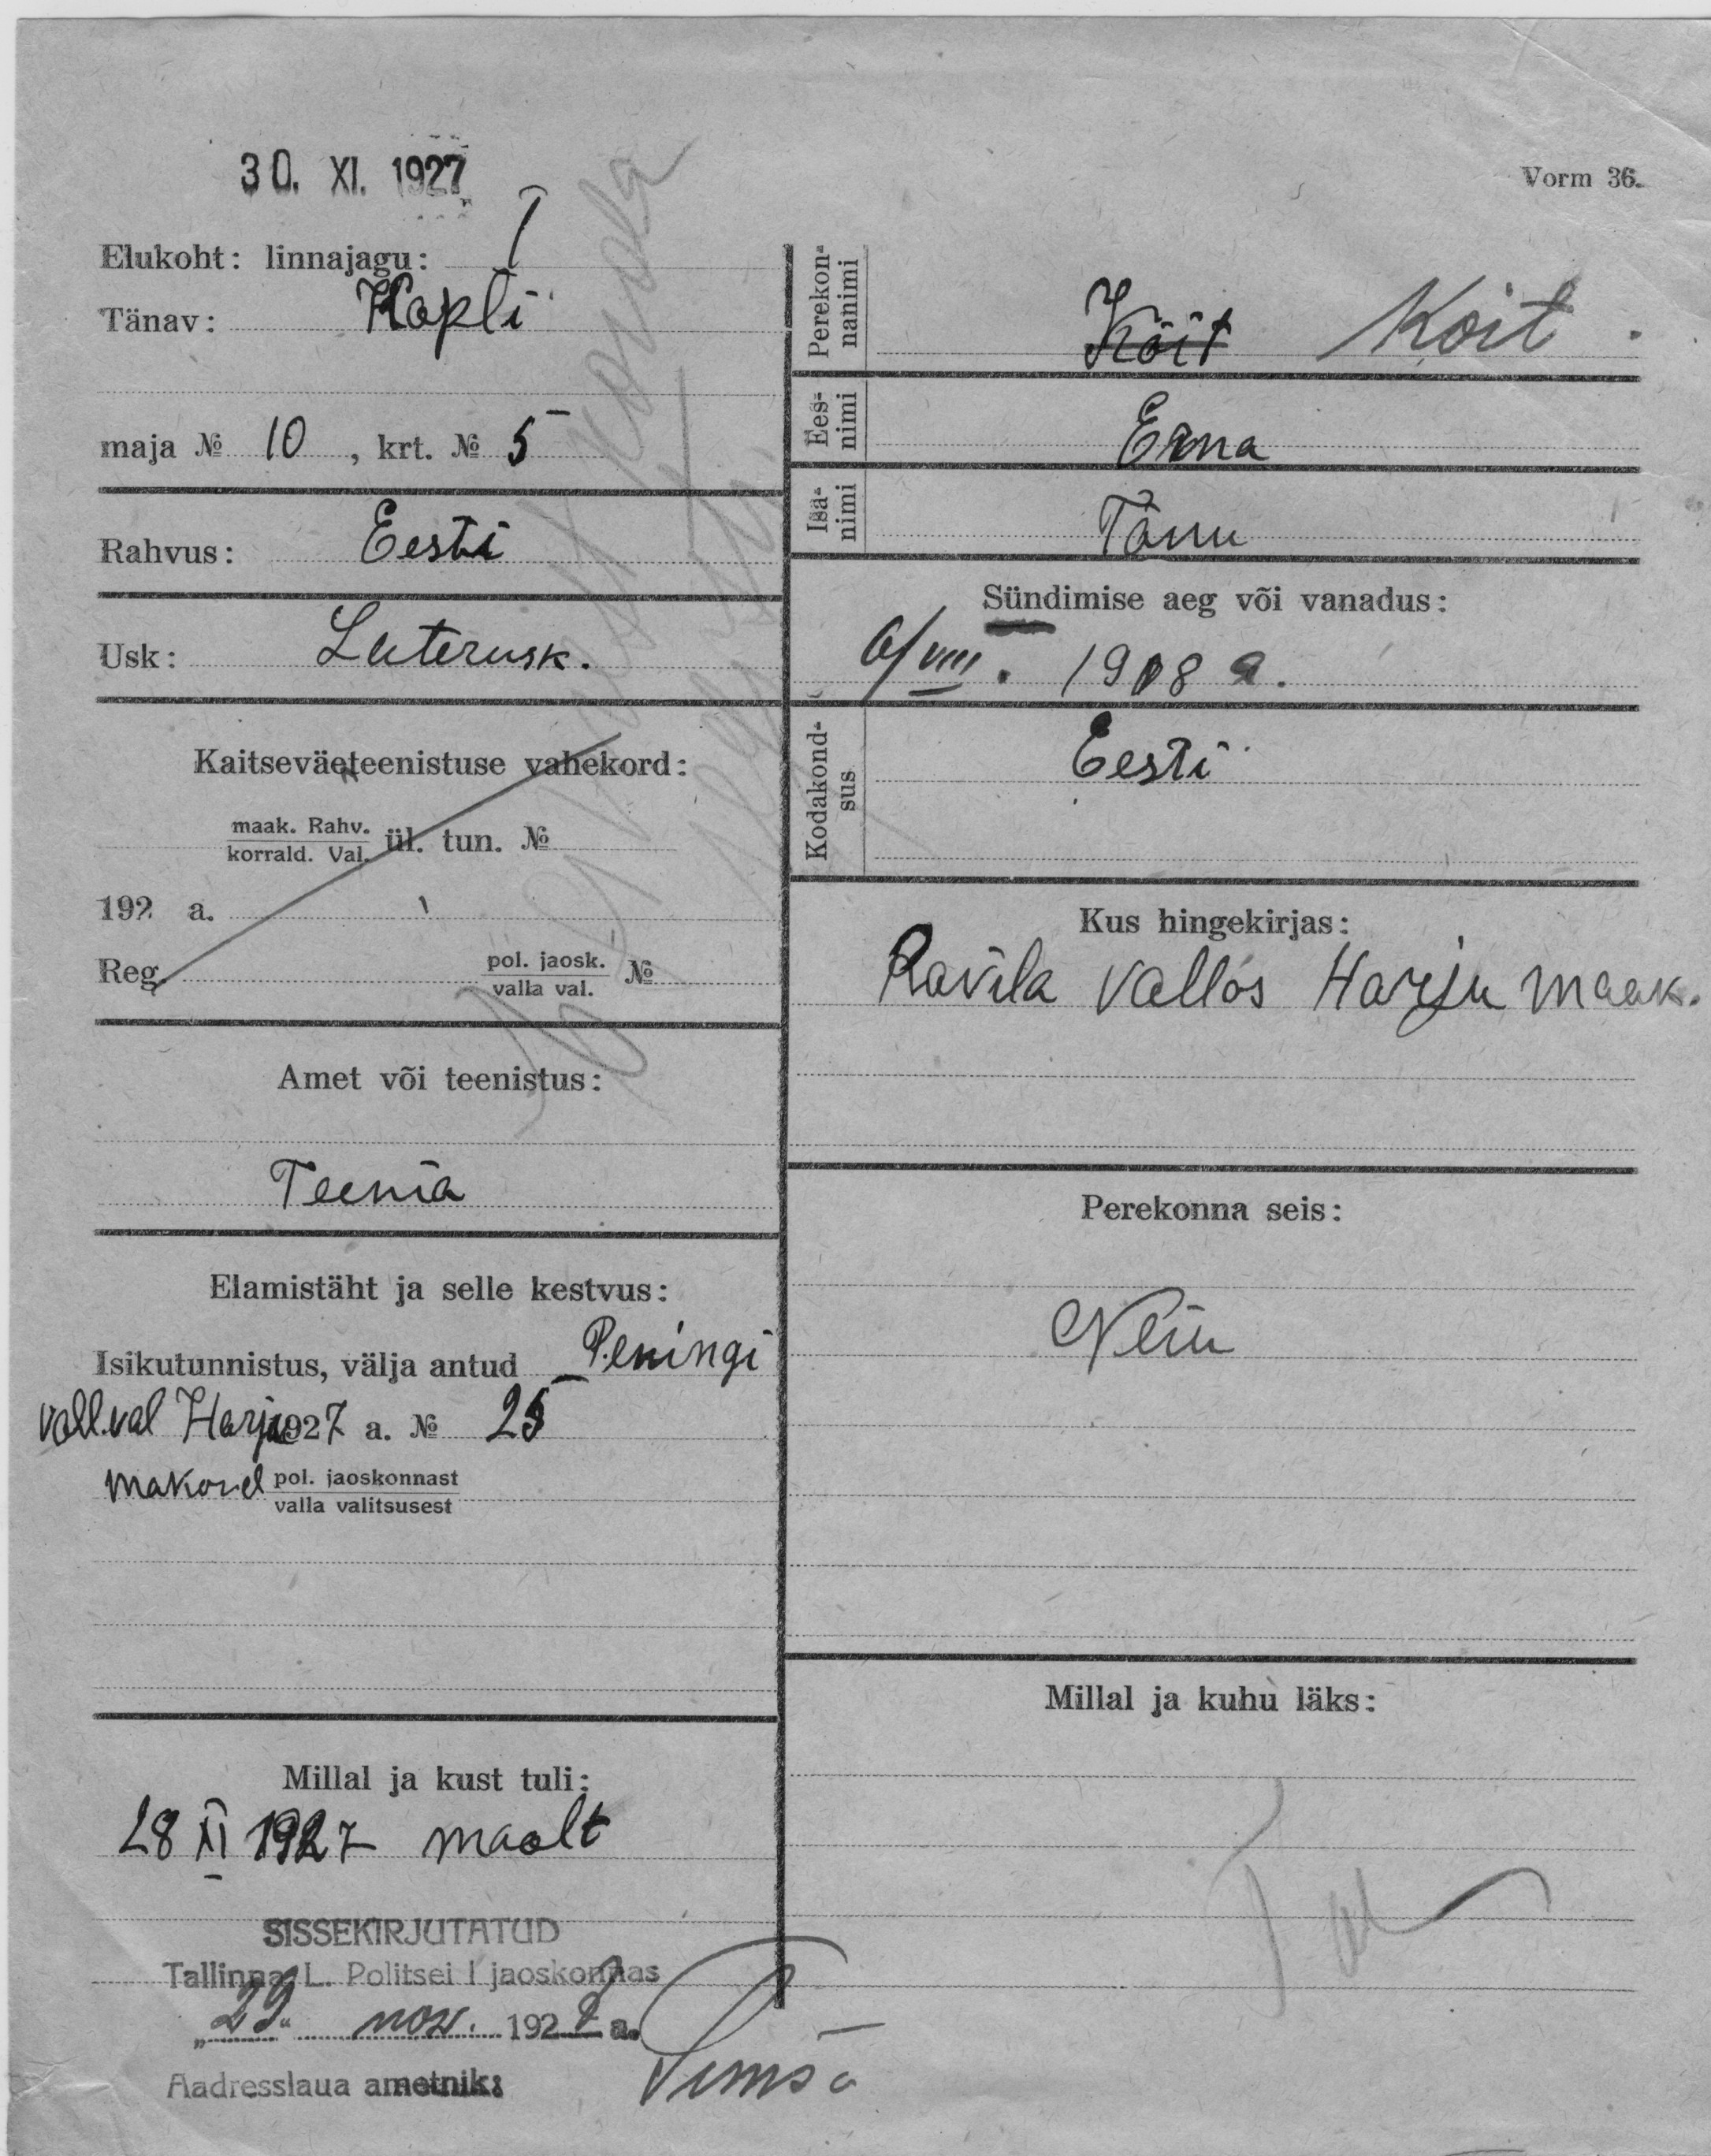 30. XI. 1927
Vorm 36.
Elukoht: linnajagu: I
Tänav: Kopli
maja № 10, krt. № 5
Rahvus: Eesti
Usk: Luterusk.
Kaitseväeteenistuse vahekord:
maak. Rahv.
korrald. Val. ül. tun. №
192 a.
Reg. pol. jaosk. №
valla val.
Amet või teenistus:
Teenia
Elamistäht ja selle kestvus:
Isikutunnistus, välja antud Peningi
vall.val Harju 1927 a. № 25
makond pol. jaoskonnast
valla valitsusest
Millal ja kust tuli:
28 XI 1927 maalt
SISSEKIRJUTATUD
Tallinna L. Politsei I jaoskonnas
"29" nov. 1927 a.
Aadresslaua ametnik:
Perekon-
nanimi
Köit Koit
Ees-
nimi
Erna
Isa-
nimi
Tõnu
Sündimise aeg või vanadus:
6/VIII. 1908 a.
Kodakond-
sus
Eesti
Kus hingekirjas:
Ravila vallas Harju maak.
Perekonna seis:
Neiu
Millal ja kuhu läks: